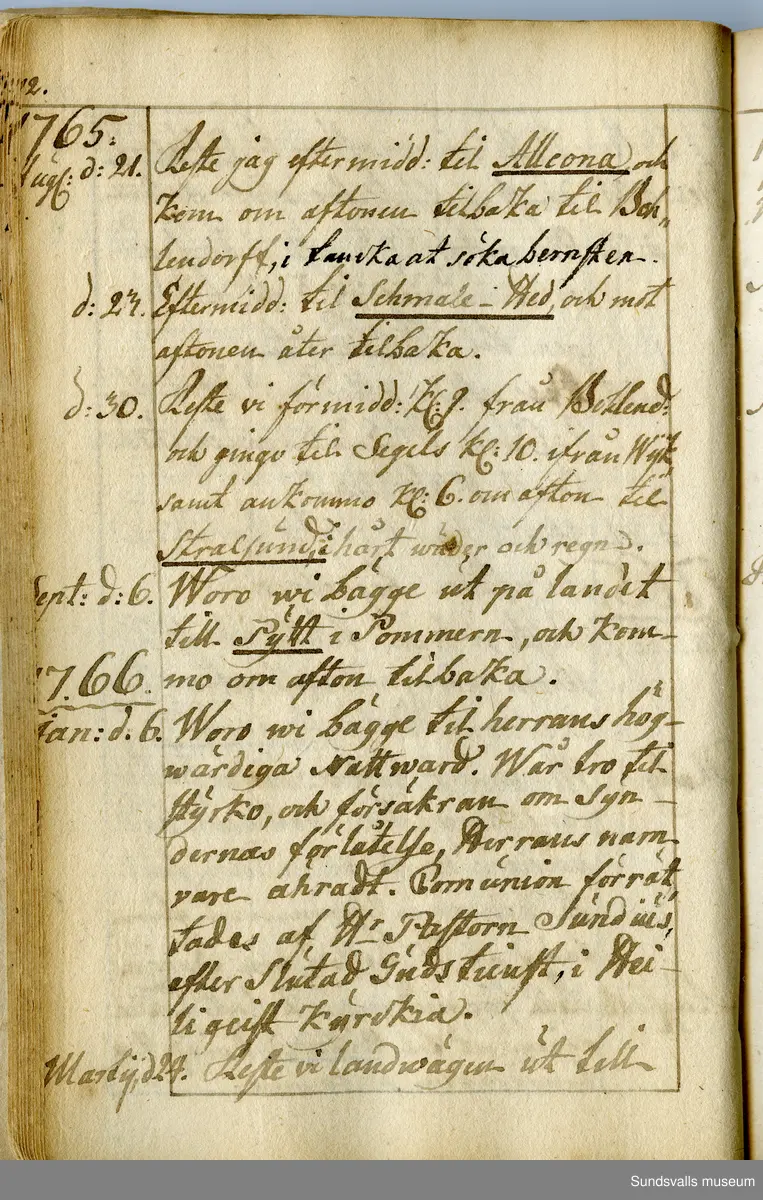 72.
1765.
Aug: d: 21. Reste jag eftermidd: til Altcona och
kom om aftonen tilbaka til Boh„
lendorff, i tanka at söka bernsten.
d: 24. Eftermidd: til Schmale-Hed, och mot
aftonen åter tilbaka.
d: 30. Reste vi förmidd: Kl: 9. från Bohlend:
och gingo til Segels Kl: 10. ifrån Wyk,
samt ankommo Kl: 6. om afton til
Stralsund, i hårt wäder och regn.
Sept: d: 6. Woro wi bägge ut på landet
till Pütt i Pommern, och kom-
1766. mo om afton tilbaka.
Jan: d. 6. Woro wi bägge til herrans hög-
wärdiga Nattward. Wår tro til
styrko, och försäkran om Syn-
dernas förlåtelse, Herrans namn
vare ähradt. Comunion förrät„
tades af Hr Pastorn Sundius,
efter Slutad Gudstienst, i Hei-
ligeist Kyrckia.
Martij, d 24. Reste vi landwägen ut till
Sundsvalls museum